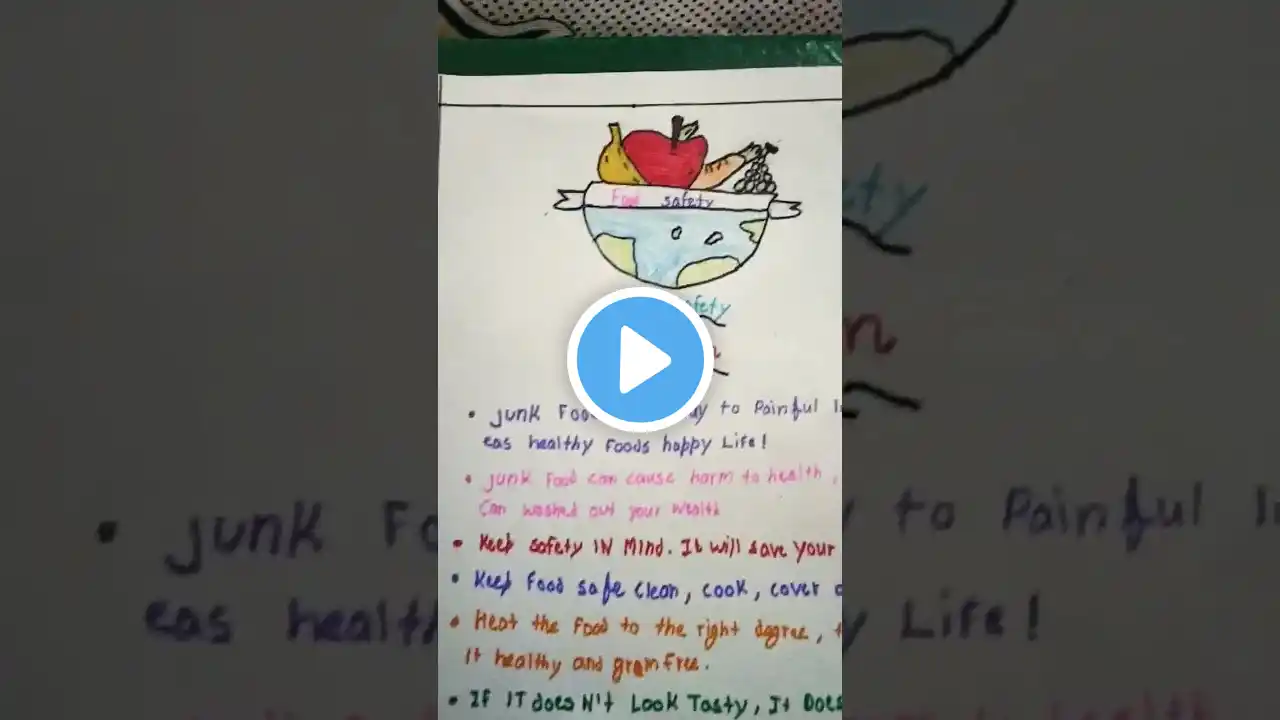 Food safety
safety
• Junk Foo to Painful
eas healthy Foods happy Life!
• Junk Food can cause harm to health,
Can washed out your wealth
• Keep safety IN MInd. It will save your
• Keep Food safe clean, cook, cover
• Heat the Food to the right degree,
It healthy and gramfree.
• IF IT does N't Look Tasty, It Does